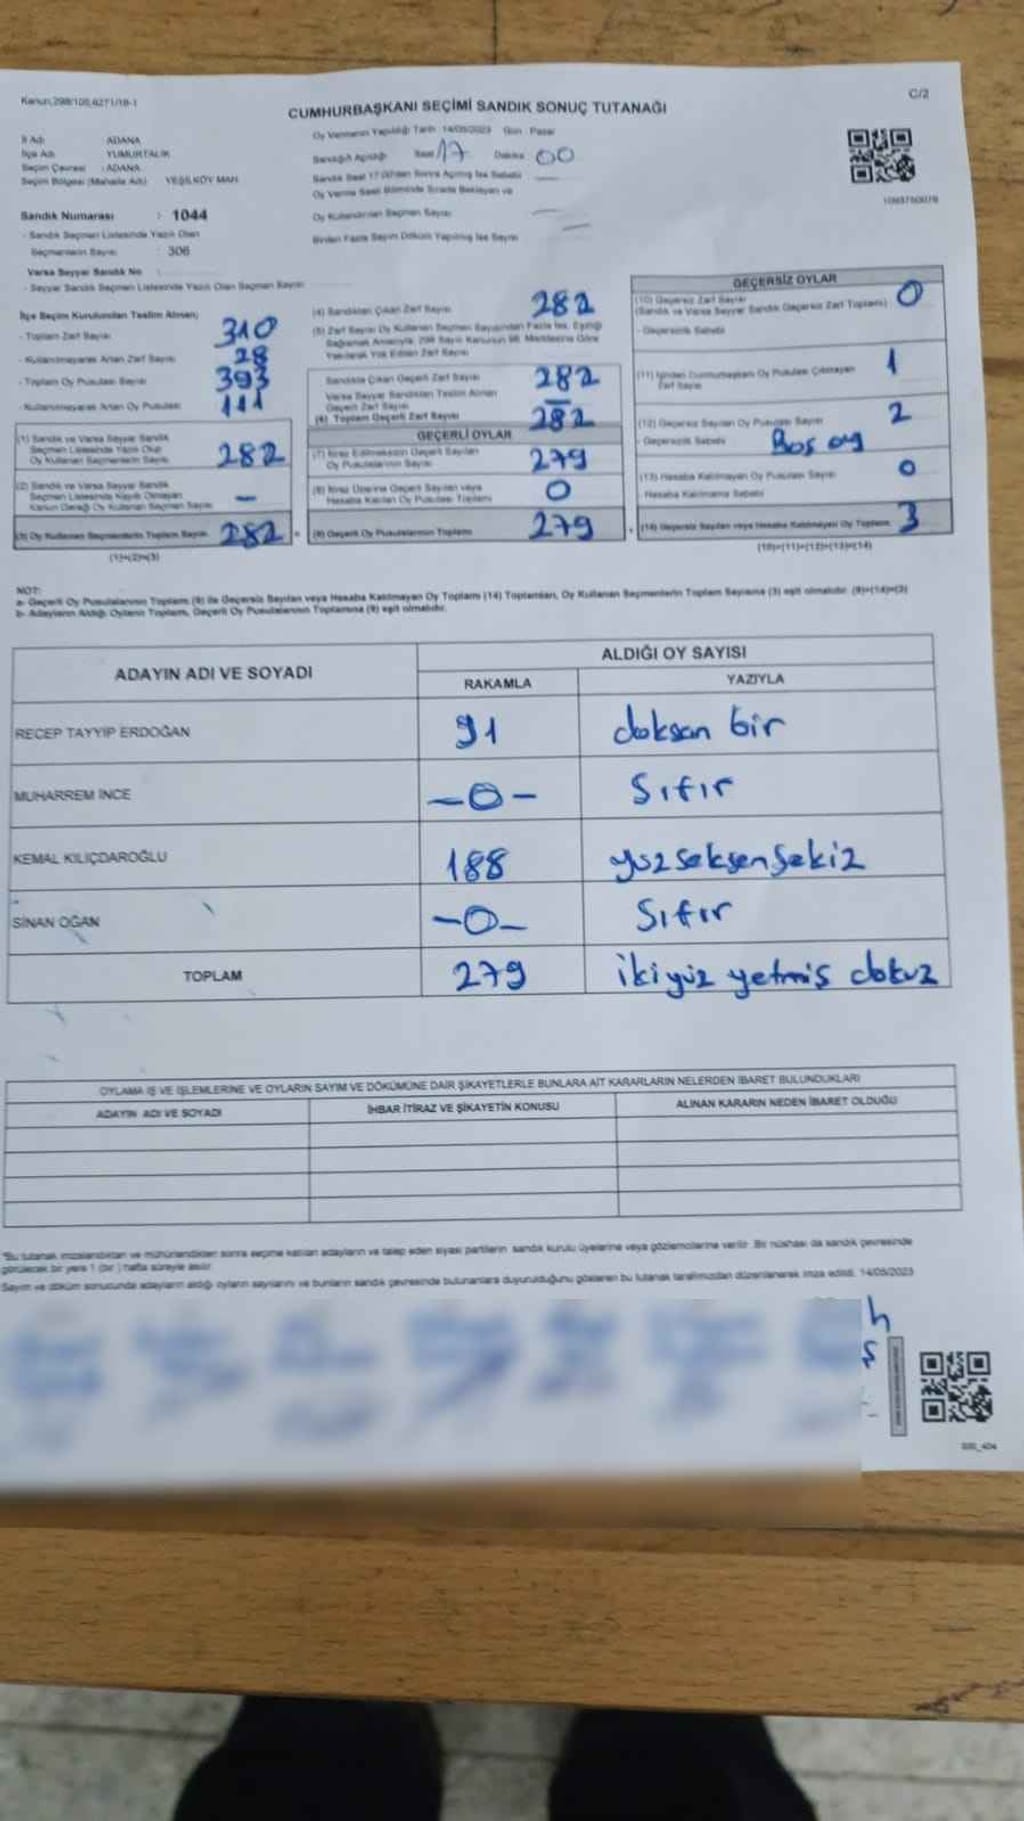 Kanun,298/105,6271/18-1
C/2
CUMHURBAŞKANI SEÇİMİ SANDIK SONUÇ TUTANAĞI
İl Adı : ADANA
İlçe Adı : YUMURTALIK
Seçim Çevresi : ADANA
Seçim Bölgesi (Mahalle Adı) : YEŞİLKÖY MAH.
Oy Vermenin Yapıldığı Tarih 14/05/2023 Gün Pazar
Sandığın Açıldığı Saat 17 Dakika 00
Sandık Numarası : 1044
- Sandık Seçmen Listesinde Yazılı Olan
Seçmenlerin Sayısı : 306
Varsa Seyyar Sandık No :
- Seyyar Sandık Seçmen Listesinde Yazılı Olan Seçmen Sayısı
Sandık Saat 17.00'den Sonra Açılmış İse Sebebi
Oy Verme Saati Bitiminde Sırada Bekleyen ve
Oy Kullandırılan Seçmen Sayısı
Birden Fazla Sayım Döküm Yapılmış İse Sayısı
İlçe Seçim Kurulundan Teslim Alınan;
- Toplam Zarf Sayısı 310
- Kullanılmayarak Artan Zarf Sayısı 28
- Toplam Oy Pusulası Sayısı 393
- Kullanılmayarak Artan Oy Pusulası 111
(1) Sandık ve Varsa Seyyar Sandık
Seçmen Listesinde Yazılı Olup
Oy Kullanan Seçmenlerin Sayısı 282
(2) Sandık ve Varsa Seyyar Sandık
Seçmen Listesinde Kayıtlı Olmayan
Kanun Gereği Oy Kullanan Seçmen Sayısı –
(3) Oy Kullanan Seçmenlerin Toplam Sayısı 282
(1)+(2)=(3)
(4) Sandıktan Çıkan Zarf Sayısı 282
(5) Zarf Sayısı Oy Kullanan Seçmen Sayısından Fazla İse, Eşitliği
Sağlamak Amacıyla, 298 Sayılı Kanunun 98. Maddesine Göre
Yakılarak Yok Edilen Zarf Sayısı
Sandıkta Çıkan Geçerli Zarf Sayısı 282
Varsa Seyyar Sandıktan Teslim Alınan
Geçerli Zarf Sayısı –
(6) Toplam Geçerli Zarf Sayısı 282
GEÇERLİ OYLAR
(7) İtiraz Edilmeksizin Geçerli Sayılan
Oy Pusulalarının Sayısı 279
(8) İtiraz Üzerine Geçerli Sayılan veya
Hesaba Katılan Oy Pusulası Toplamı 0
(9) Geçerli Oy Pusulalarının Toplamı 279
GEÇERSİZ OYLAR
(10) Geçersiz Zarf Sayısı
(Sandık ve Varsa Seyyar Sandık Geçersiz Zarf Toplamı) 0
- Geçersizlik Sebebi
(11) İçinden Cumhurbaşkanı Oy Pusulası Çıkmayan
Zarf Sayısı 1
(12) Geçersiz Sayılan Oy Pusulası Sayısı 2
- Geçersizlik Sebebi Boş oy
(13) Hesaba Katılmayan Oy Pusulası Sayısı 0
- Hesaba Katılmama Sebebi
(14) Geçersiz Sayılan veya Hesaba Katılmayan Oy Toplamı 3
(10)+(11)+(12)+(13)=(14)
NOT:
a- Geçerli Oy Pusulalarının Toplamı (9) ile Geçersiz Sayılan veya Hesaba Katılmayan Oy Toplamı (14) Toplamları, Oy Kullanan Seçmenlerin Toplam Sayısına (3) eşit olmalıdır. (9)+(14)=(3)
b- Adayların Aldığı Oyların Toplamı, Geçerli Oy Pusulalarının Toplamına (9) eşit olmalıdır.
ADAYIN ADI VE SOYADI
ALDIĞI OY SAYISI
RAKAMLA YAZIYLA
RECEP TAYYİP ERDOĞAN 91 doksan bir
MUHARREM İNCE –0– Sıfır
KEMAL KILIÇDAROĞLU 188 yüzseksensekiz
SİNAN OĞAN –0– Sıfır
TOPLAM 279 ikiyüz yetmiş dokuz
OYLAMA İŞ VE İŞLEMLERİNE VE OYLARIN SAYIM VE DÖKÜMÜNE DAİR ŞİKAYETLERLE BUNLARA AİT KARARLARIN NELERDEN İBARET BULUNDUKLARI
ADAYIN ADI VE SOYADI İHBAR İTİRAZ VE ŞİKAYETİN KONUSU ALINAN KARARIN NEDEN İBARET OLDUĞU
*Bu tutanak imzalandıktan ve mühürlendikten sonra seçime katılan adayların ve talep eden siyasi partilerin sandık kurulu üyelerine veya gözlemcilerine verilir. Bir nüshası da sandık çevresinde
görülecek bir yere 1 (bir) hafta süreyle asılır.
Sayım ve döküm sonucunda adayların aldığı oyların sayılarını ve bunların sandık çevresinde bulunanlara duyurulduğunu gösteren bu tutanak tarafımızdan düzenlenerek imza edildi. 14/05/2023